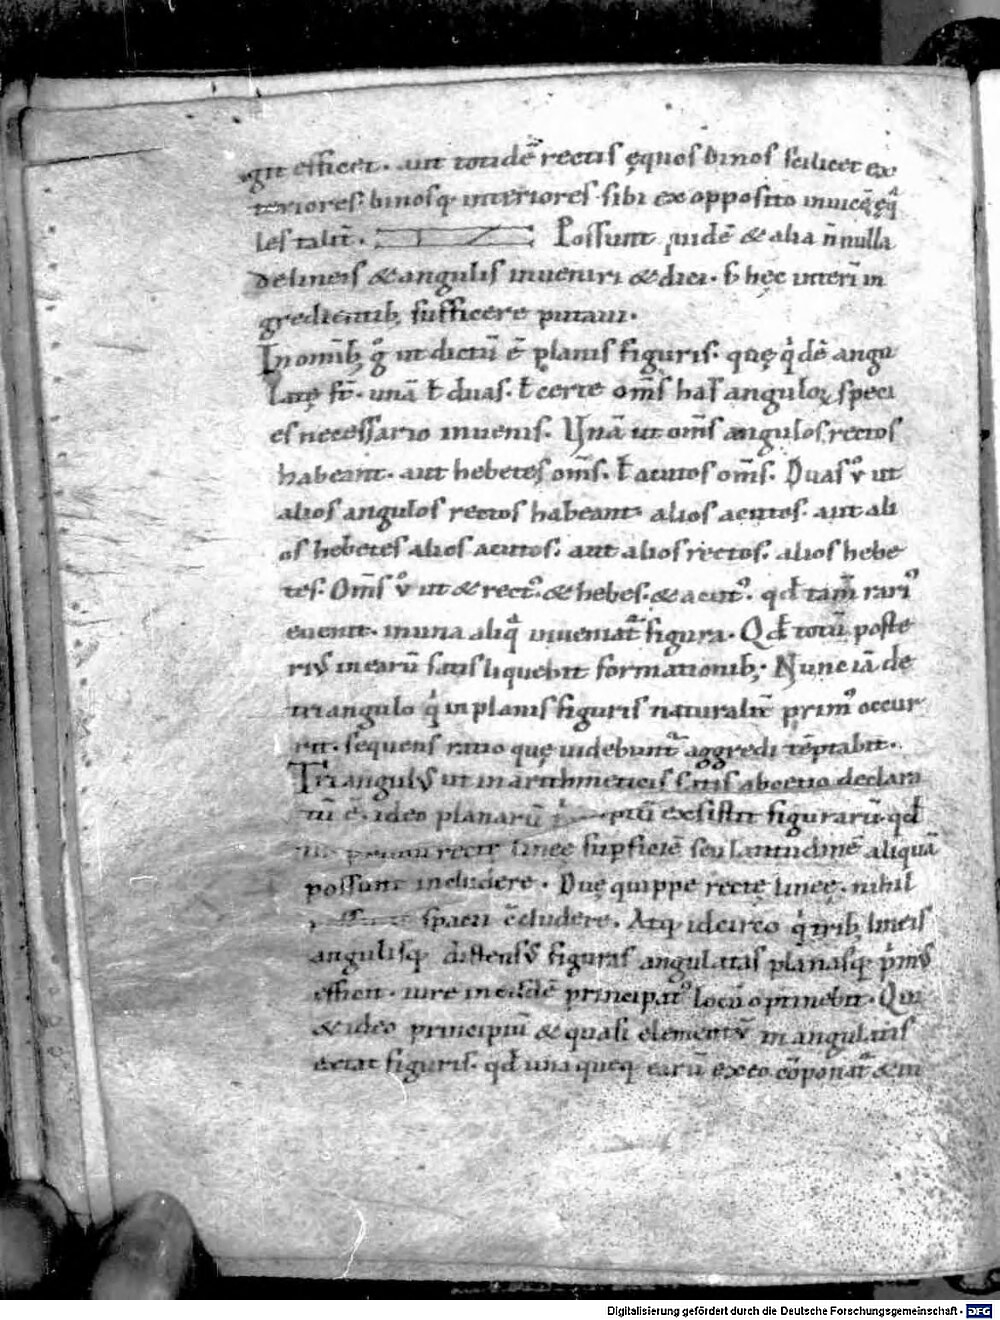 git efficer. aut totidē rectis ęquos binos scilicet ex
teriores. binosq; interiores. sibi ex opposito inuicē ęq̄
les talit̄. Possunt quidē & alia ñnulla
de lineis & angulis inueniri & dici. s; hęc interī in
gredientib; sufficere putaui.
In omīb; g̊ ut dictū ē planis figuris. quę qͥdē angu
larę st̄. unā ł duas. ł certe om̄s has anguloꝝ speci
es necessario inuenis. Vnā ut om̄s angulos rectos
habeant. aut hebetes om̄s. ł acutos om̄s. Duas v̊ ut
alios angulos rectos habeant alios acutos. aut ali
os hebetes alios acutos. aut alios rectos. alios hebe
tes. Om̄s v̊ ut & rect᾿. & hebes. & acut᾿. qđ tam̄ rari᾿
euenit. in una aliq̄ inueniat᷑ figura. Qđ totū poste
rius in earū satis liquebit formationib;. Nunc iā de
triangulo qͥ in planis figuris naturalit̄ prim᾿ occur
rit. sequens ratio quę uidebunt᷑ aggredi tēptabit.
Triangulus ut in arithmeticis satis a boetio declara
tū ē. ideo planarū piū exsistit figurarū. qđ
recte lineę supficiē seu latitudinē aliquā
possunt includere. Duę quippe rectę lineę. nihil
spatii c̄cludere. Atq; idcirco qͥ trib; lineis
angulisq; distensus figuras angulatas planasq; pͥmus
efficit. iure in eisdē principat᾿ locū optinebit. Qui
& ideo principiū & quasi elementū in angulatis
extat figuris. qđ una quęq; earū ex eo cōponat᷑ & in
Digitalisierung gefördert durch die Deutsche Forschungsgemeinschaft - DFG